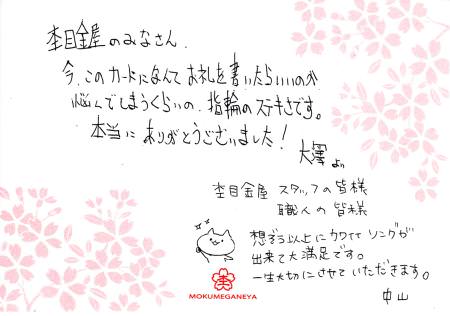 杢目金屋のみなさん
今、このカードになんてお礼を書いたらいいのか
悩んでしまうくらいの、指輪のステキさです。
本当にありがとうございました！
大澤より
杢目金屋 スタッフの皆様
職人の皆様
想像以上にカワイイリングが
出来て大満足です。
一生大切にさせていただきます。
中山
杢
MOKUMEGANEYA